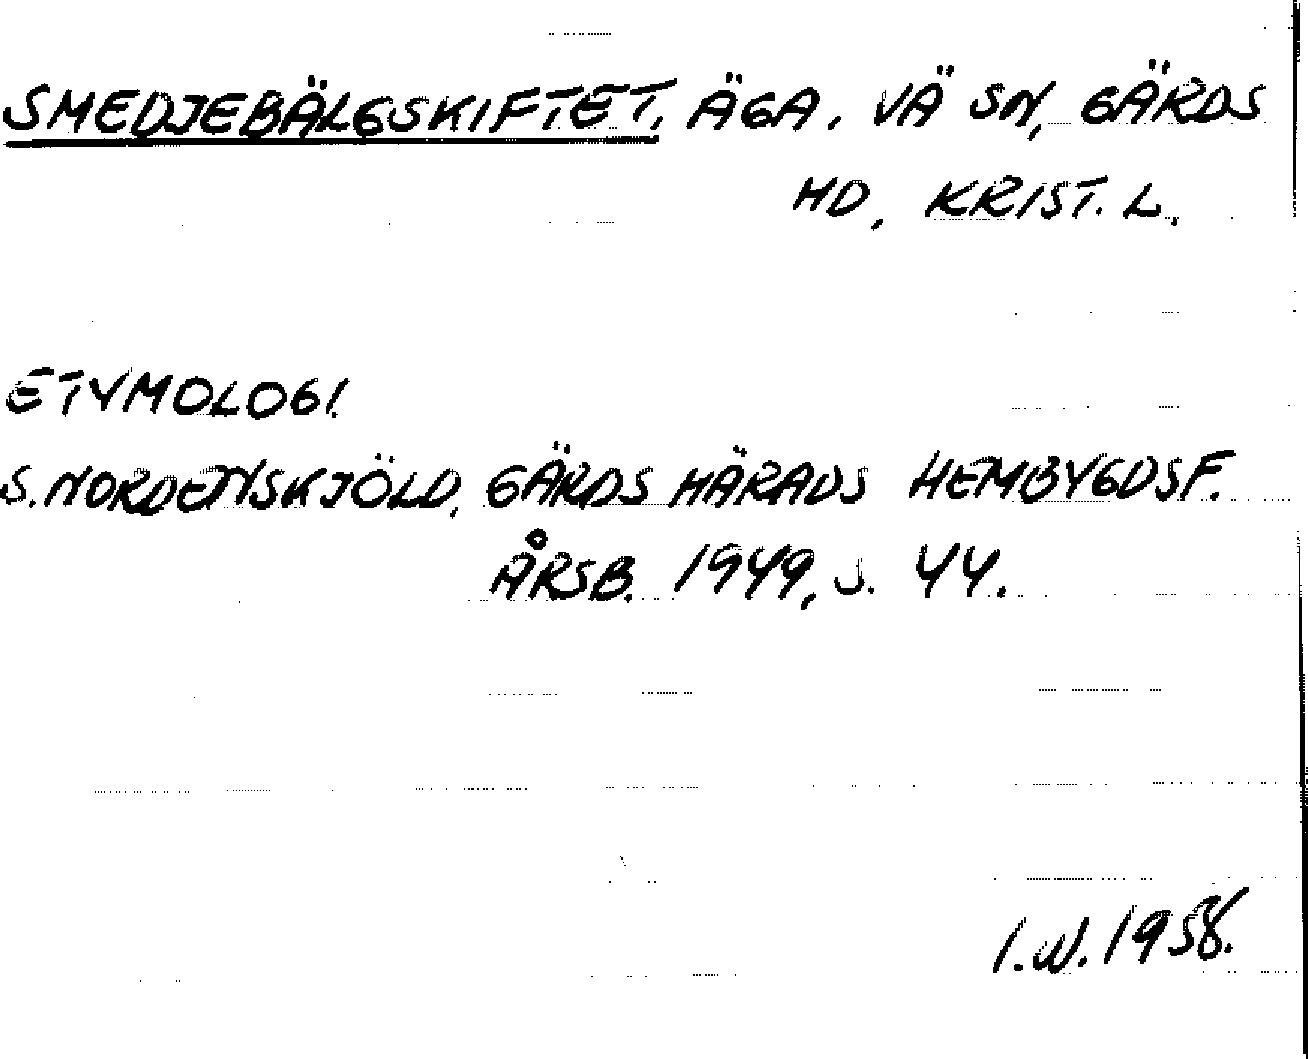 SMEDJEBÄLGSKIFTET, ÄGA, VÄ SN, GÄRDS
HD, KRIST. L.
ETYMOLOGI
S. NORDENSKJÖLD, GÄRDS HÄRADS HEMBYGDSF.
ÅRSB. 1949, s. 44.
I.W. 1958.